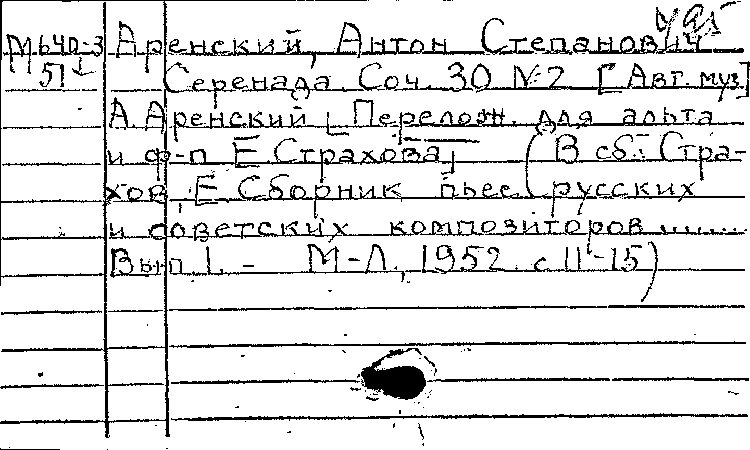 М640-3 Аренский, Антон Степанович
51 Серенада. Соч. 30 №2 [Авт. муз]
А. Аренский [Перелож. для альта
и ф-п Е. Страхова] (В сб.: Стра-
хов, Е. Сборник пьес русских
и советских композиторов......
Вып 1. - М-Л., 1952. с 11-15)